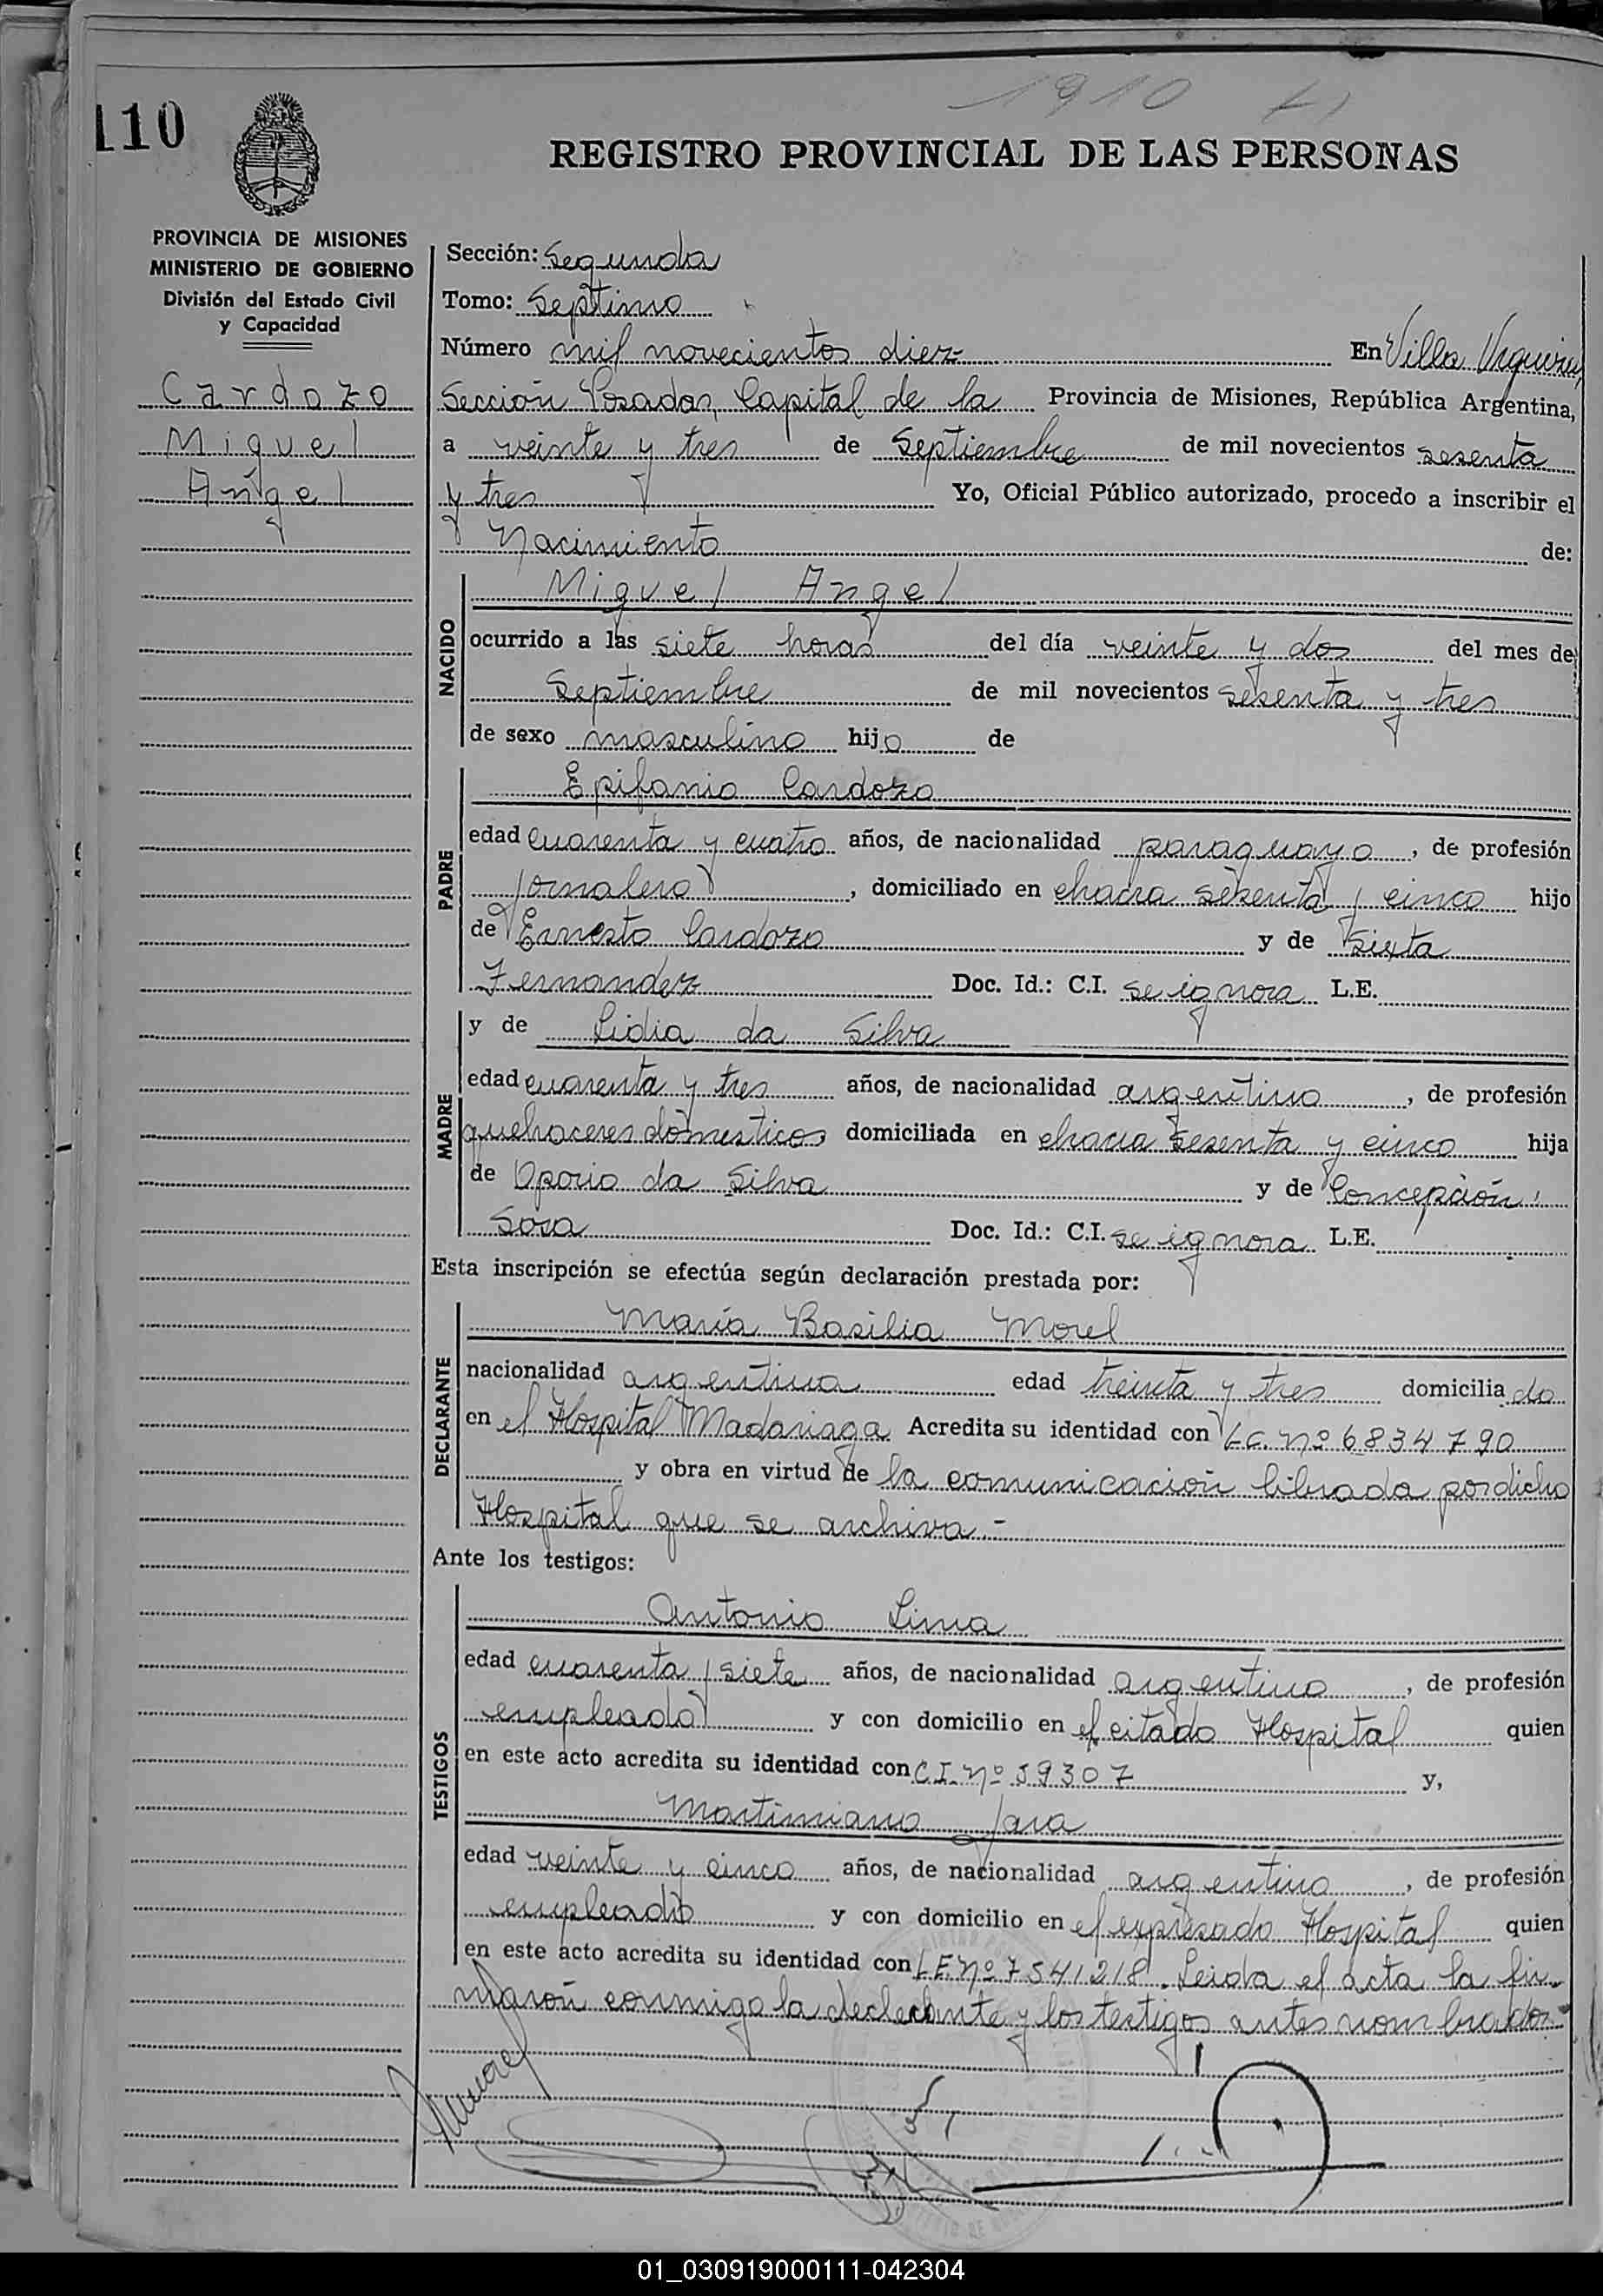 1910
110
REGISTRO PROVINCIAL DE LAS PERSONAS
PROVINCIA DE MISIONES
MINISTERIO DE GOBIERNO
División del Estado Civil
y Capacidad
Cardozo
Miguel
Angel
Sección: Segunda
Tomo: Septimo
Número mil novecientos diez En Villa Urquiza,
Sección Posadas, Capital de la Provincia de Misiones, República Argentina,
a veinte y tres de Septiembre de mil novecientos sesenta
y tres Yo, Oficial Público autorizado, procedo a inscribir el
Nacimiento de:
NACIDO
Miguel Angel
ocurrido a las siete horas del día veinte y dos del mes de
Septiembre de mil novecientos sesenta y tres
de sexo masculino hijo de
PADRE
Epifanio Cardozo
edad cuarenta y cuatro años, de nacionalidad paraguayo, de profesión
jornalero, domiciliado en chacra sesenta y cinco hijo
de Ernesto Cardozo y de Sixta
Fernandez Doc. Id.: C.I. se ignora L.E.
MADRE
y de Lidia da Silva
edad cuarenta y tres años, de nacionalidad argentina, de profesión
quehaceres domesticos domiciliada en chacra sesenta y cinco hija
de Oporio da Silva y de Concepción
Sosa Doc. Id.: C.I. se ignora L.E.
Esta inscripción se efectúa según declaración prestada por:
DECLARANTE
María Basilia Morel
nacionalidad argentina edad treinta y tres domicilia da
en el Hospital Madariaga Acredita su identidad con L.C. Nº 6834790
y obra en virtud de la comunicación librada por dicho
Hospital que se archiva.-
Ante los testigos:
TESTIGOS
Antonio Lima
edad cuarenta y siete años, de nacionalidad argentino, de profesión
empleado y con domicilio en el citado Hospital quien
en este acto acredita su identidad con C.I. Nº 59307 y,
Martimiano Jara
edad veinte y cinco años, de nacionalidad argentino, de profesión
empleado y con domicilio en el expresado Hospital quien
en este acto acredita su identidad con L.E. Nº 7541218. Leida el acta la fir-
maron conmigo la declarante y los testigos antes nombrados.-
01_030919000111-042304